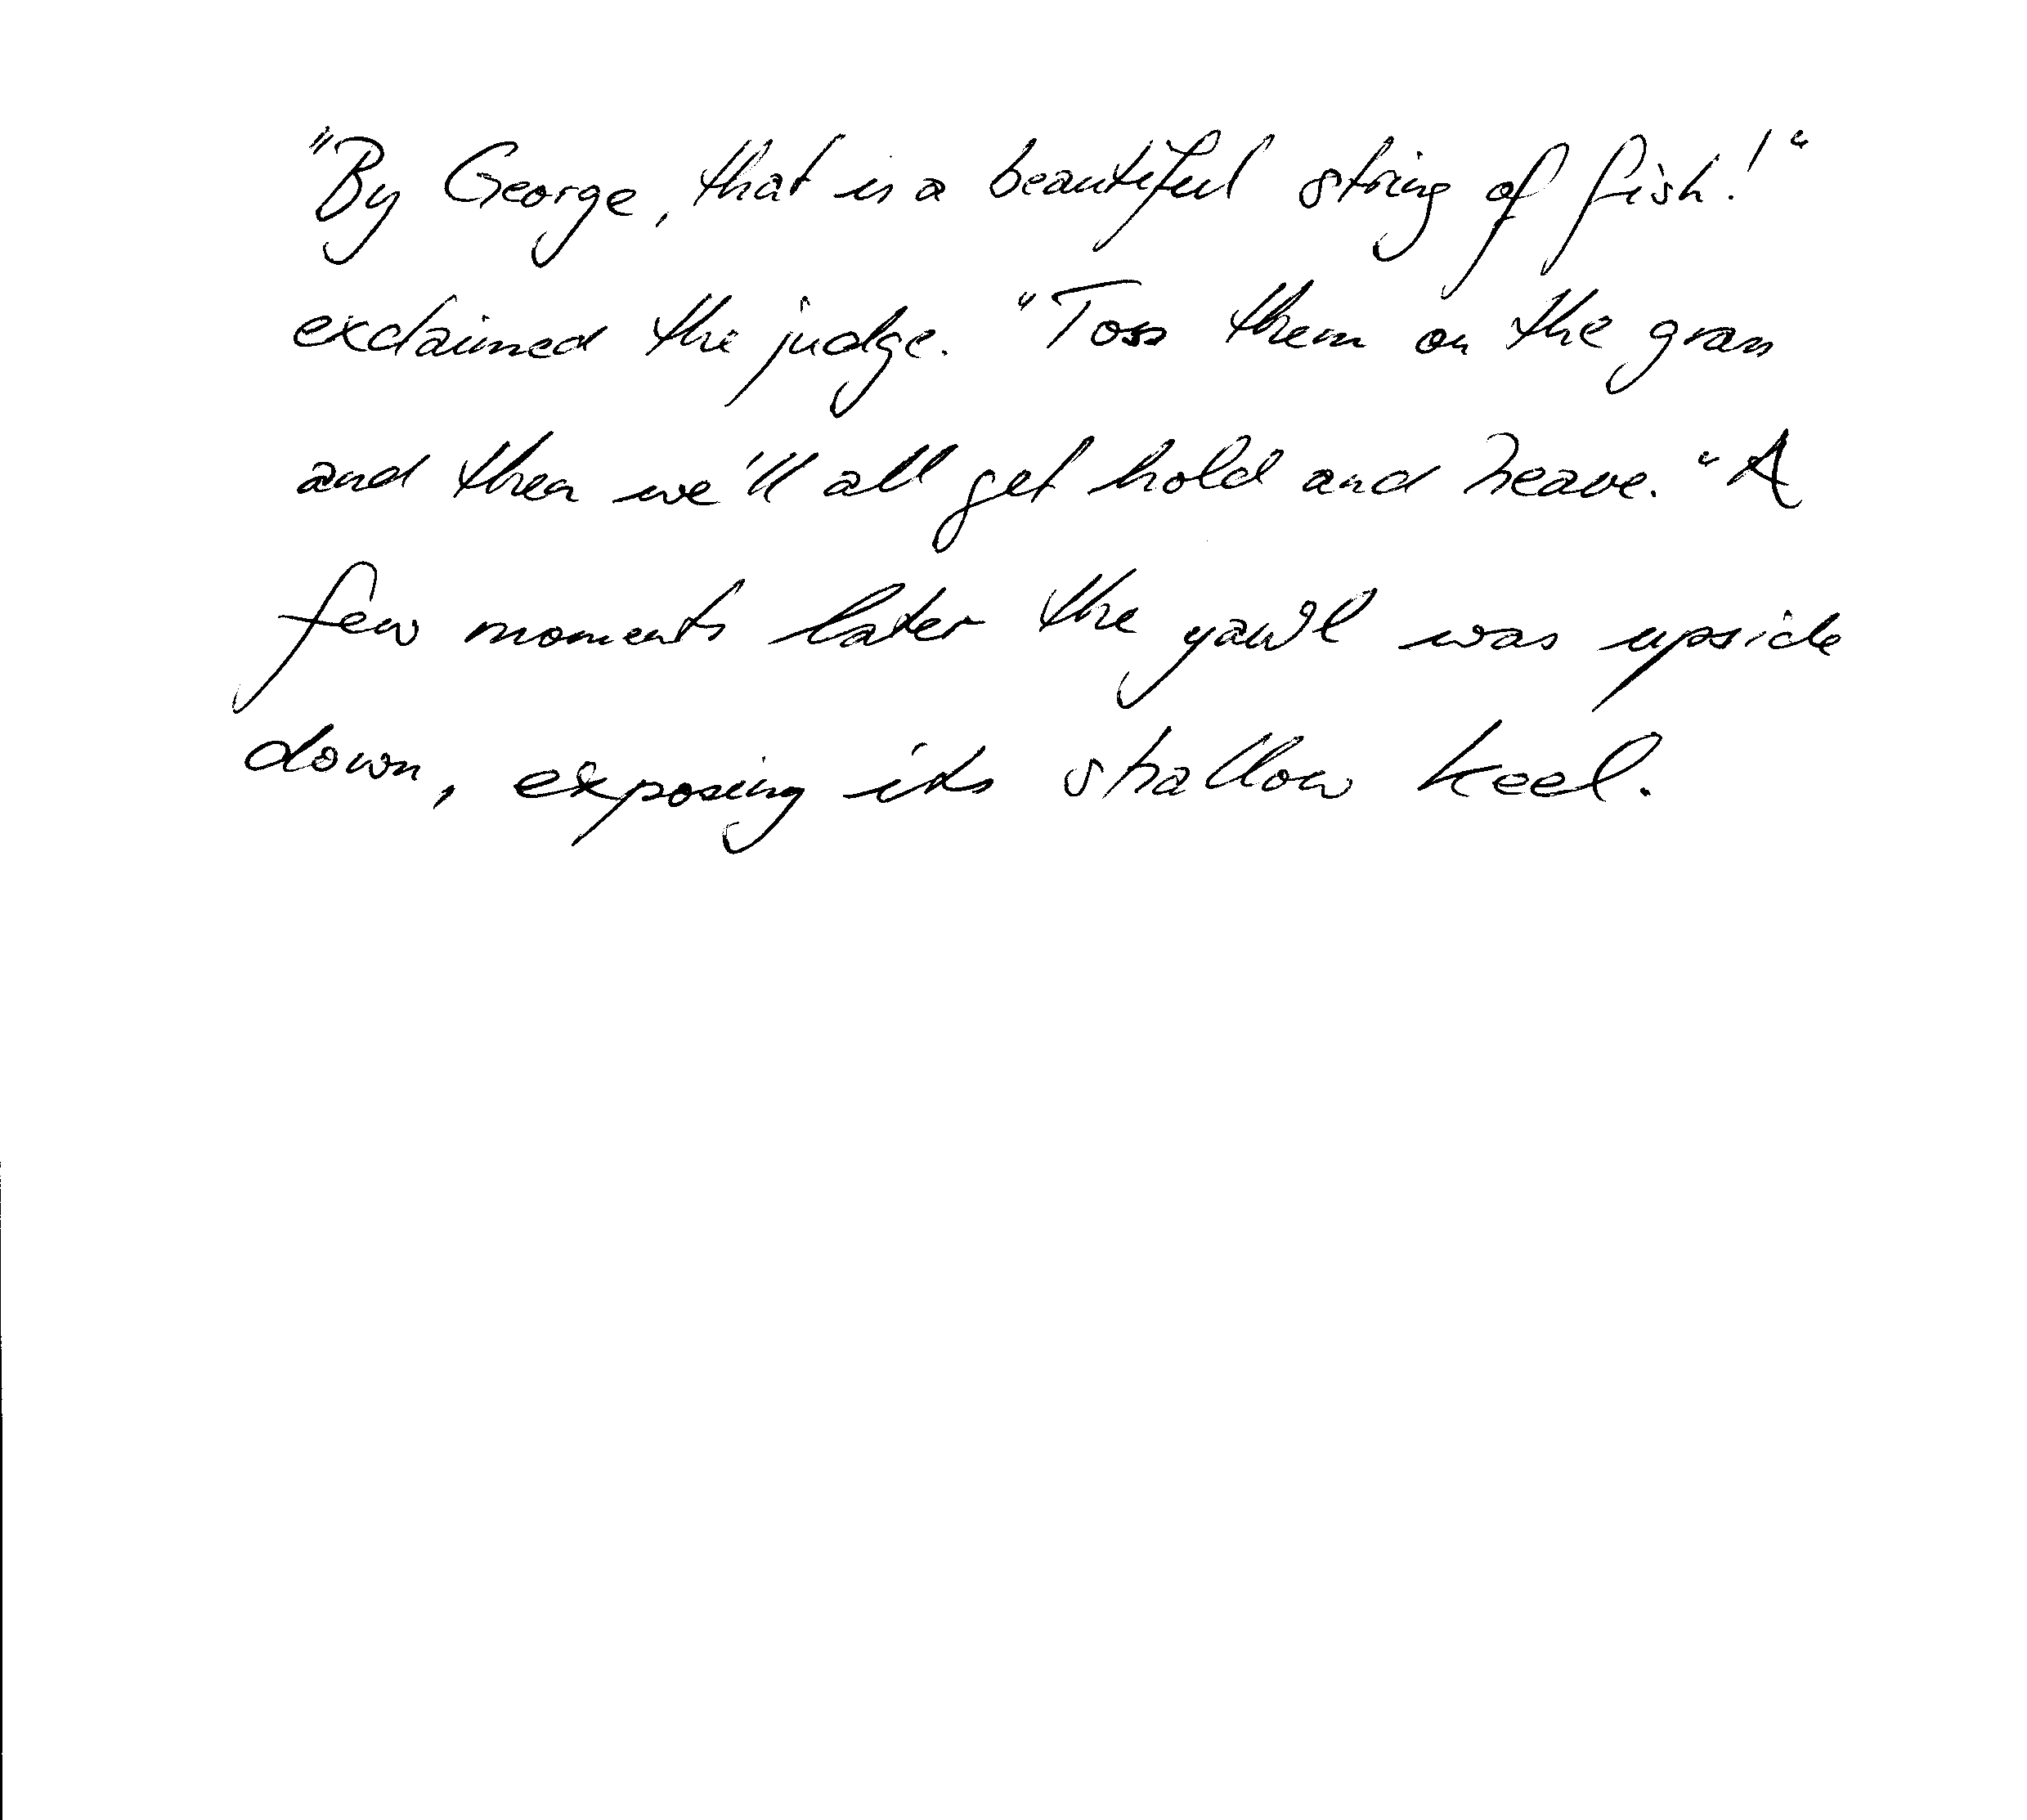 "By George, that is a beautiful string of fish!"
exclaimed the judge. "Toss them on the grass
and then we'll all get hold and heave." A
few moments later the yawl was upside
down, exposing its shallow keel.